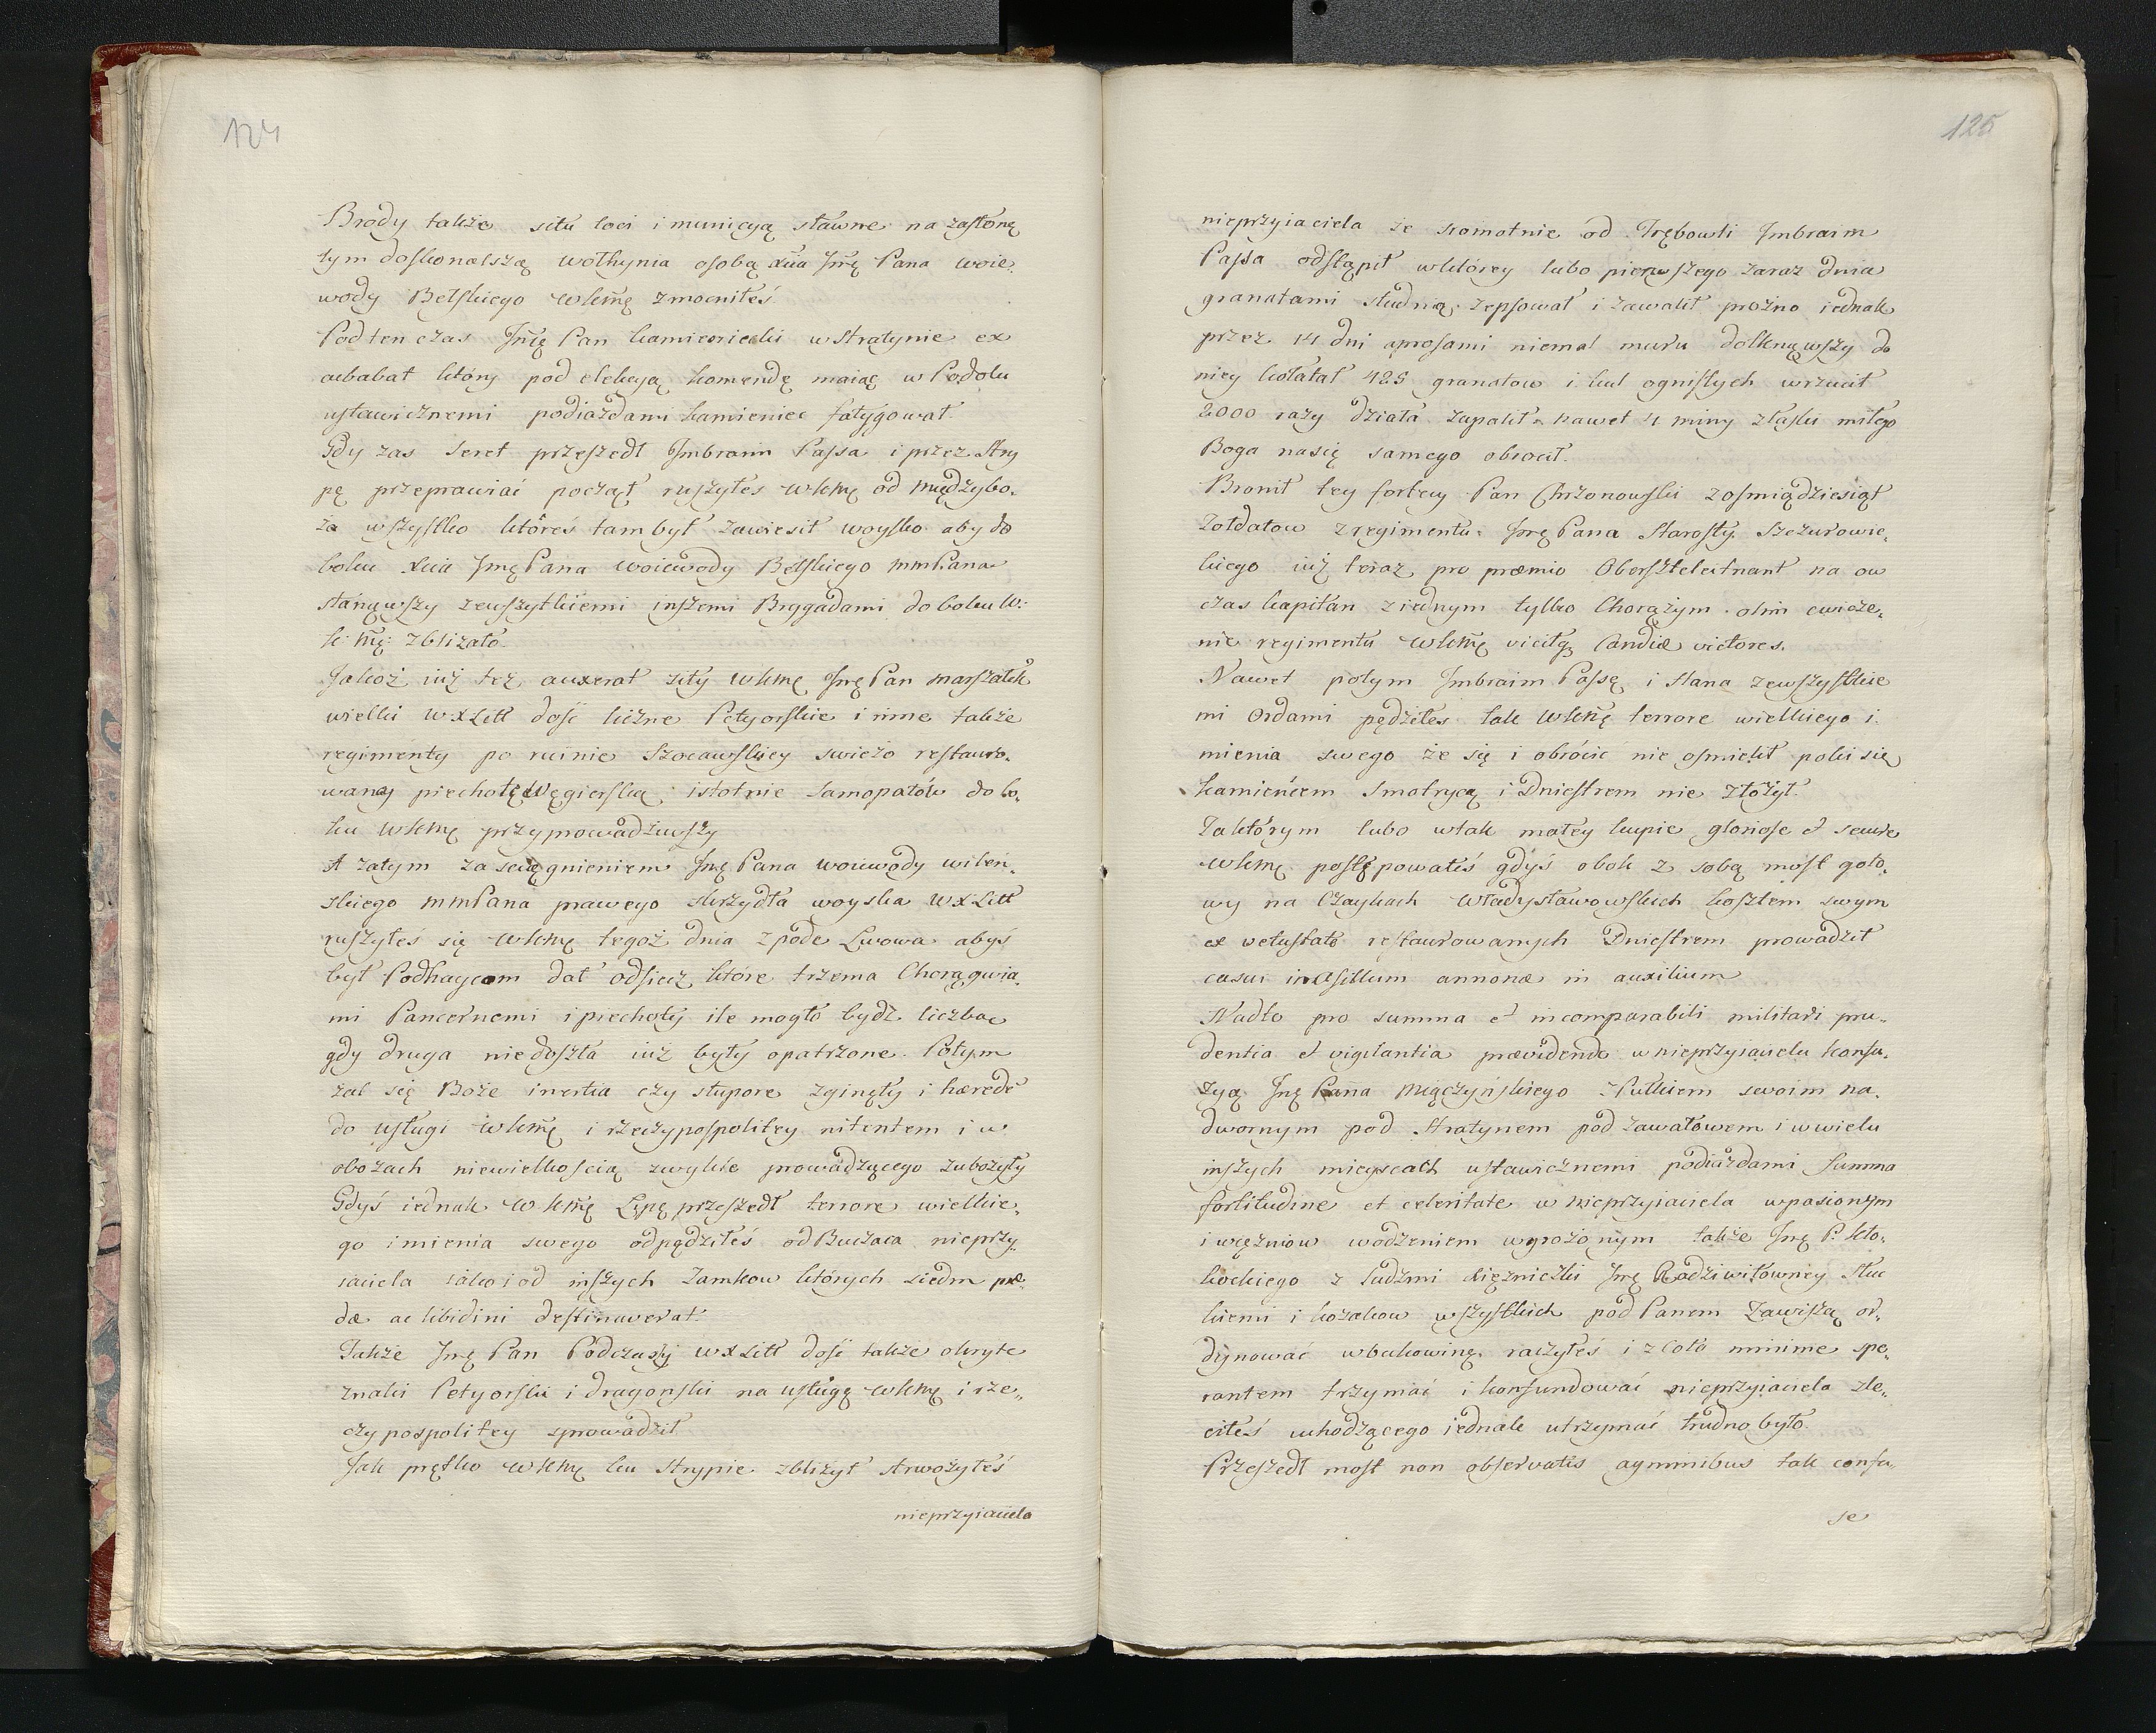 124
Brody także situ loci i municyą sławne na zasłonę
tym doskonalszą wołhynia osobą Xcia Jmę Pana woie„
wody Bełskiego WKMę zmocniłeś
Podten czas Jmę Pan kamieniecki w Stratynie ex
cubabat który pod elekcyą komendę maiąc w Podolu
ustawicznemi podiazdami kamieniec fatygował.
Gdy zas Seret przeszedł Imbraim Passa i przez Stry
pę przeprawiać począł ruszyłes WKMę od Międzybo„
ża wszystko któreś tam był zawiesił woysko aby do
boku Xcia Jmę Pana woiewody Bełskiego mmPana
stanąwszy zewszytkiemi inszemi Brygadami do boku W:
k: Mę: zblizało.
Jakoż iuż też auxerat siły WKMę Jmę Pan marszałek
wielki WXLitt dość liczne Petyorskie i inne także
regimenty po ruinie Szocawskiey swieżo restauro„
waney piechotę Węgierską istotnie samopałów do bo„
ku WKMę przyprowadziwszy
A zatym za sciągnieniem Jmę Pana woiewody wilen„
skiego mmPana prawego skrzydła woyska WXLitt
ruszyłeś się WKMę tegoż dnia z pode Lwowa abyś
był Podhaycom dał odsiecz które trzema Chorągwia„
mi Pancernemi i piechoty ile mogło bydź liczbac
gdy druga niedoszła iuż były opatrzone. Potym
żal się Boże inertia czy stupore zginęły i hæredē
do usługi WKMę i rzeczypospolitey nitentem i w
obozach niewielkoscią zwykłe prowadzącego zubożyły
Gdyś iednak WKMę Lipę przeszedł terrore wielkie„
go imienia swego odpędziłeś od Buczaca nieprzy„
iaciela iako i od inszych Zamkow których siedm præ
dæ ac libidini destinaverat.
Także Jmę Pan Podczaszy WXLitt dość także okryte
znaki Petyorskie i dragonskie na usługę WKMę i rze„
czypospolitey sprowadził
Jak prętko WKMę ku Strypie zbliżył strwożyłeś
nieprzyiaciela
125
nieprzyiaciela że sromotnie od Trębowli Jmbraim
Passa odstąpił wktórey lubo pierwszego zaraz dnia
granatami studnią zepsował i zawalił prożno iednak
przez 14 dni aprosami niemal muru dotknąwszy do
niey kołatał 425 granatow i kul ognistych wrzucił
2000 razy działa zapalił nawet 4 miny złaski miłego
Boga nasię samego obrocił.
Bronił tey fortecy Pan Chrzonowski z osmiądziesiąt
Zołdatow z regimentu Jmę Pana Starosty Szczurowie„
kiego iuż teraz pro præmio Oberszteleitnant na ow
czas kapitan z iednym tylko Chorążym olim cwicze„
nie regimentu WKMę vicitq3 Candiæ victores.
Nawet potym Jmbraim Passę i Hana zewszystkie
mi Ordami pędziłes tak WKMę terrore wielkiego i„
mienia swego że się i obrócić nie osmielił poki się
kamieńcem Smotrycą i Dniestrem nie złożył.
Zaktórym lubo wtak małey kupie gloriose et secure
WKMę postępowałeś gdyś obok z sobą most goto„
wy na Czaykach Władysławowskich kosztem swym
ex vetustate restaurowanych Dniestrem prowadził
casui in asillum annonæ in auxilium
Nadto pro summa et incomparabili militari pru„
dentia et vigilantia prævidendo w nieprzyiacielu konfu„
zyą Jmę Pana Miączyńskiego z Pułkiem swoim na„
dwornym pod Stratynem pod zawałowem i wwielu
inszych mieyscach ustawicznemi podiazdami summa
fortitudine et celeritate w nieprzyiaciela wpaionym
i więzniow wodzeniem wprożonym także Jmę P. kło„
kockiego z Ludzmi xiężniczki Jmę Radziwiłowney Słuc
kiemi i kozakow wszystkich pod Panem Zawiszą or„
dynować wbukowinę raczyłeś i z Coła minime spe„
rantem trzymać i konfundować nieprzyiaciela zle„
ciłeś uchodzącego iednak utrzymać trudno było.
Przeszedł most non observatis agminibus tak confu„
se